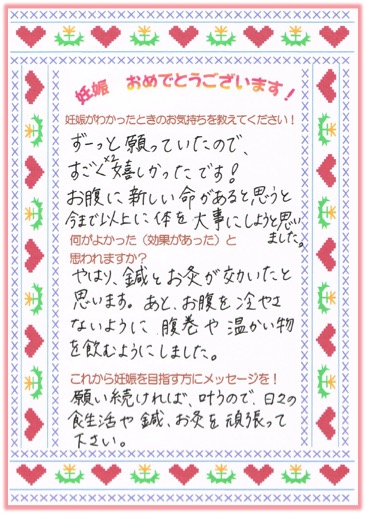 妊娠 おめでとうございます!
妊娠がわかったときのお気持ちを教えてください!
ずーっと願っていたので、
すごく×2嬉しかったです!
お腹に新しい命があると思うと
今まで以上に体を大事にしようと思い
ました。
何がよかった(効果があった)と
思われますか?
やはり、鍼とお灸が効いたと
思います。あと、お腹を冷やさ
ないように腹巻や温かい物
を飲むようにしました。
これから妊娠を目指す方にメッセージを!
願い続ければ、叶うので、日々の
食生活や鍼、お灸を頑張って
下さい。